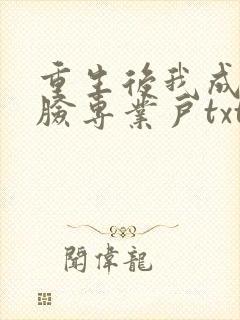 重生後我成
臉專業戶txt
聞偉龍